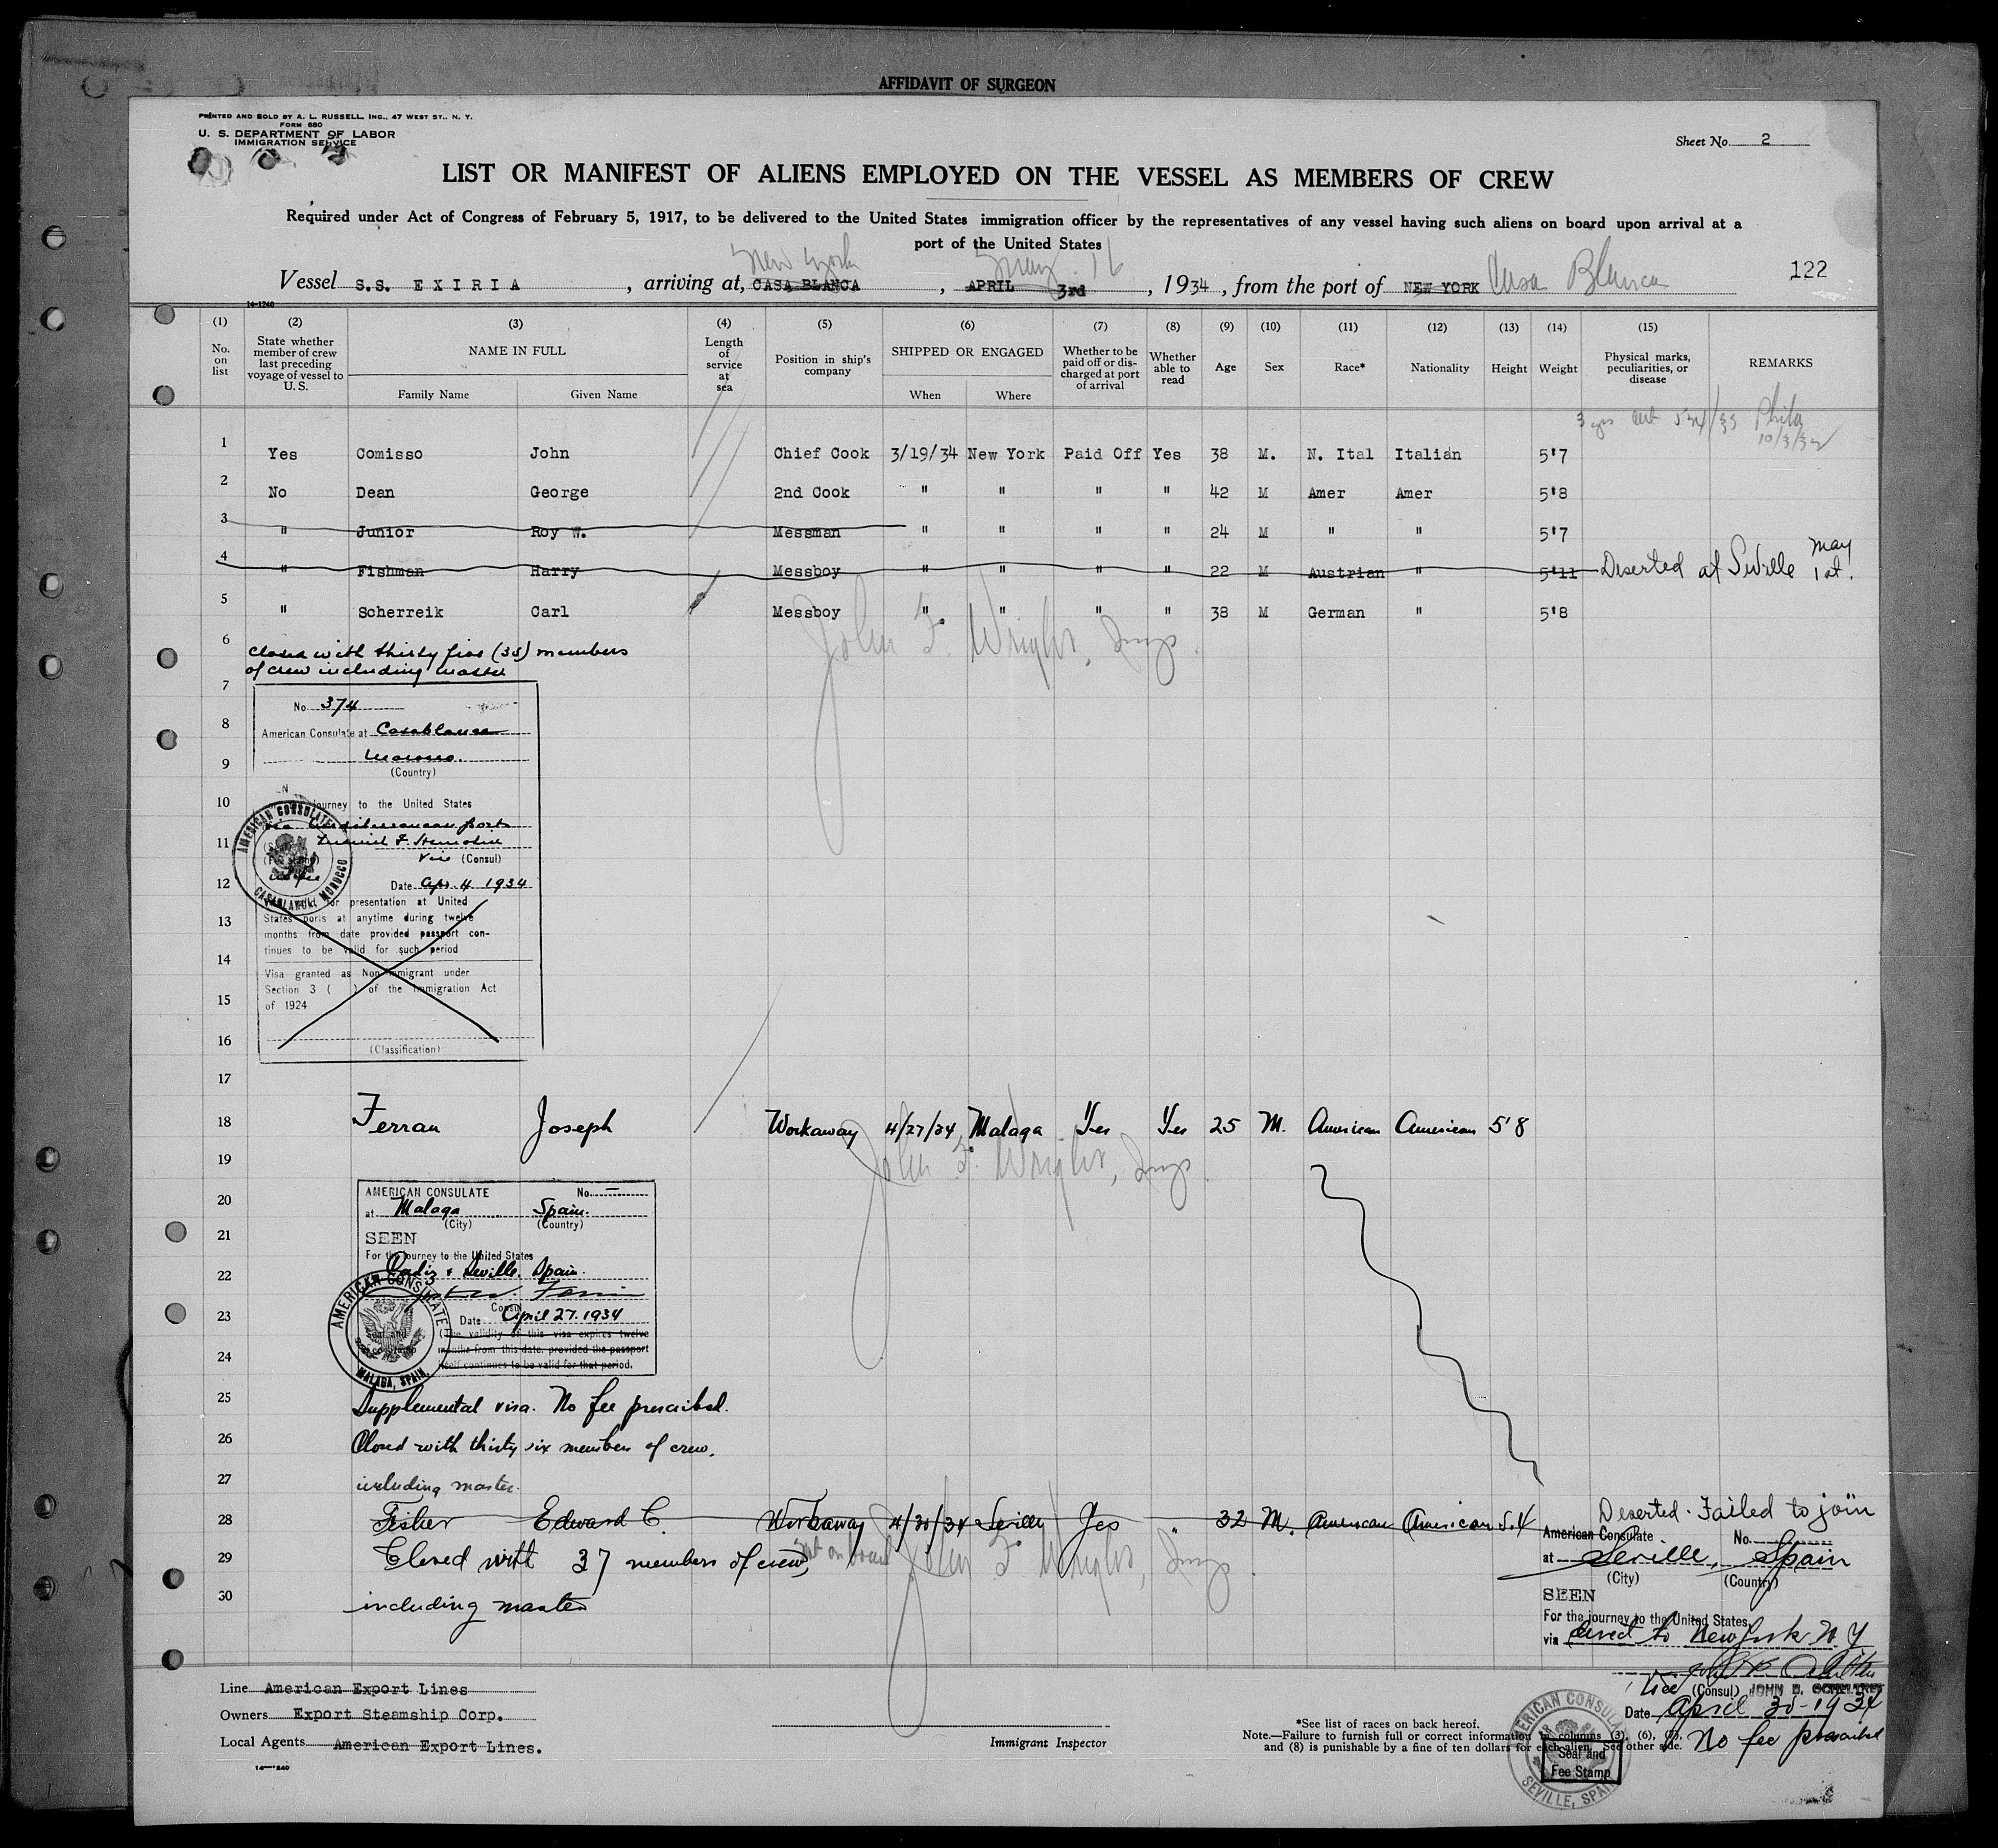 AFFIDAVIT OF SURGEON
PRINTED AND SOLD BY A. L. RUSSELL, INC., 47 WEST ST., N. Y.
FORM 680
U. S. DEPARTMENT OF LABOR
IMMIGRATION SERVICE
Sheet No. 2
LIST OR MANIFEST OF ALIENS EMPLOYED ON THE VESSEL AS MEMBERS OF CREW
Required under Act of Congress of February 5, 1917, to be delivered to the United States immigration officer by the representatives of any vessel having such aliens on board upon arrival at a
port of the United States
New York May 16
Vessel S.S. EXIRIA, arriving at, CASA BLANCA, APRIL 3rd, 1934, from the port of NEW YORK Casa Blanca
122
14-1240
(1) (2) (3) (4) (5) (6) (7) (8) (9) (10) (11) (12) (13) (14) (15)
No. on list
State whether member of crew last preceding voyage of vessel to U. S.
NAME IN FULL
Family Name
Given Name
Length of service at sea
Position in ship's company
SHIPPED OR ENGAGED
When
Where
Whether to be paid off or discharged at port of arrival
Whether able to read
Age
Sex
Race*
Nationality
Height
Weight
Physical marks, peculiarities, or disease
REMARKS
3 yrs Phila 10/3/32
1 Yes Comisso John Chief Cook 3/19/34 New York Paid Off Yes 38 M. N. Ital Italian 5'7
2 No Dean George 2nd Cook " " " " 42 M Amer Amer 5'8
3 " Junior Roy W. Messman " " " " 24 M " " 5'7
4 " Fishman Harry Messboy " " " " 22 M Austrian " 5'11 Deserted at Seville May 1st.
5 " Scherreik Carl Messboy " " " " 38 M German " 5'8
John F. Wright, Insp.
6 Closed with thirty five (35) members
of crew including master
7
No. 374
8 American Consulate at Casablanca
Morocco.
9 (Country)
10 journey to the United States
via Mediterranean ports
11
Vice (Consul)
12 Date Apr. 4 1934
AMERICAN CONSULATE CASABLANCA, MOROCCO
for presentation at United
13 States ports at anytime during twelve
months from date provided passport con-
tinues to be valid for such period
14
Visa granted as Non-immigrant under
15 Section 3 ( ) of the Immigration Act
of 1924
16 (Classification)
17
18 Ferran Joseph Workaway 4/27/34 Malaga Yes Yes 25 M. American American 5'8
19 John F. Wright, Insp.
20 AMERICAN CONSULATE No. —
at Malaga Spain.
(City) (Country)
21 SEEN
For the journey to the United States
22 Cadiz & Seville, Spain.
Consul
23 Date April 27, 1934
AMERICAN CONSULATE MALAGA, SPAIN
(The validity of this visa expires twelve
24 months from this date, provided the passport
itself continues to be valid for that period.
25 Supplemental visa. No fee prescribed.
26 Closed with thirty six members of crew,
27 including master.
28 Fisher Edward C. Workaway 4/30/34 Seville Yes " 32 M. American American 5.4 Deserted. Failed to join
29 Closed with 37 members of crew, not on board
John F. Wright, Insp.
30 including master
American Consulate No.
at Seville, Spain
(City) (Country)
SEEN
For the journey to the United States
via direct to New York N Y
Vice (Consul)
Date April 30-1934
No fee prescribed
AMERICAN CONSULATE SEVILLE, SPAIN
Seal and
Fee Stamp
Line American Export Lines
Owners Export Steamship Corp.
Local Agents American Export Lines.
Immigrant Inspector
*See list of races on back hereof.
Note.—Failure to furnish full or correct information in columns (3), (6), (7),
and (8) is punishable by a fine of ten dollars for each alien. See other side.